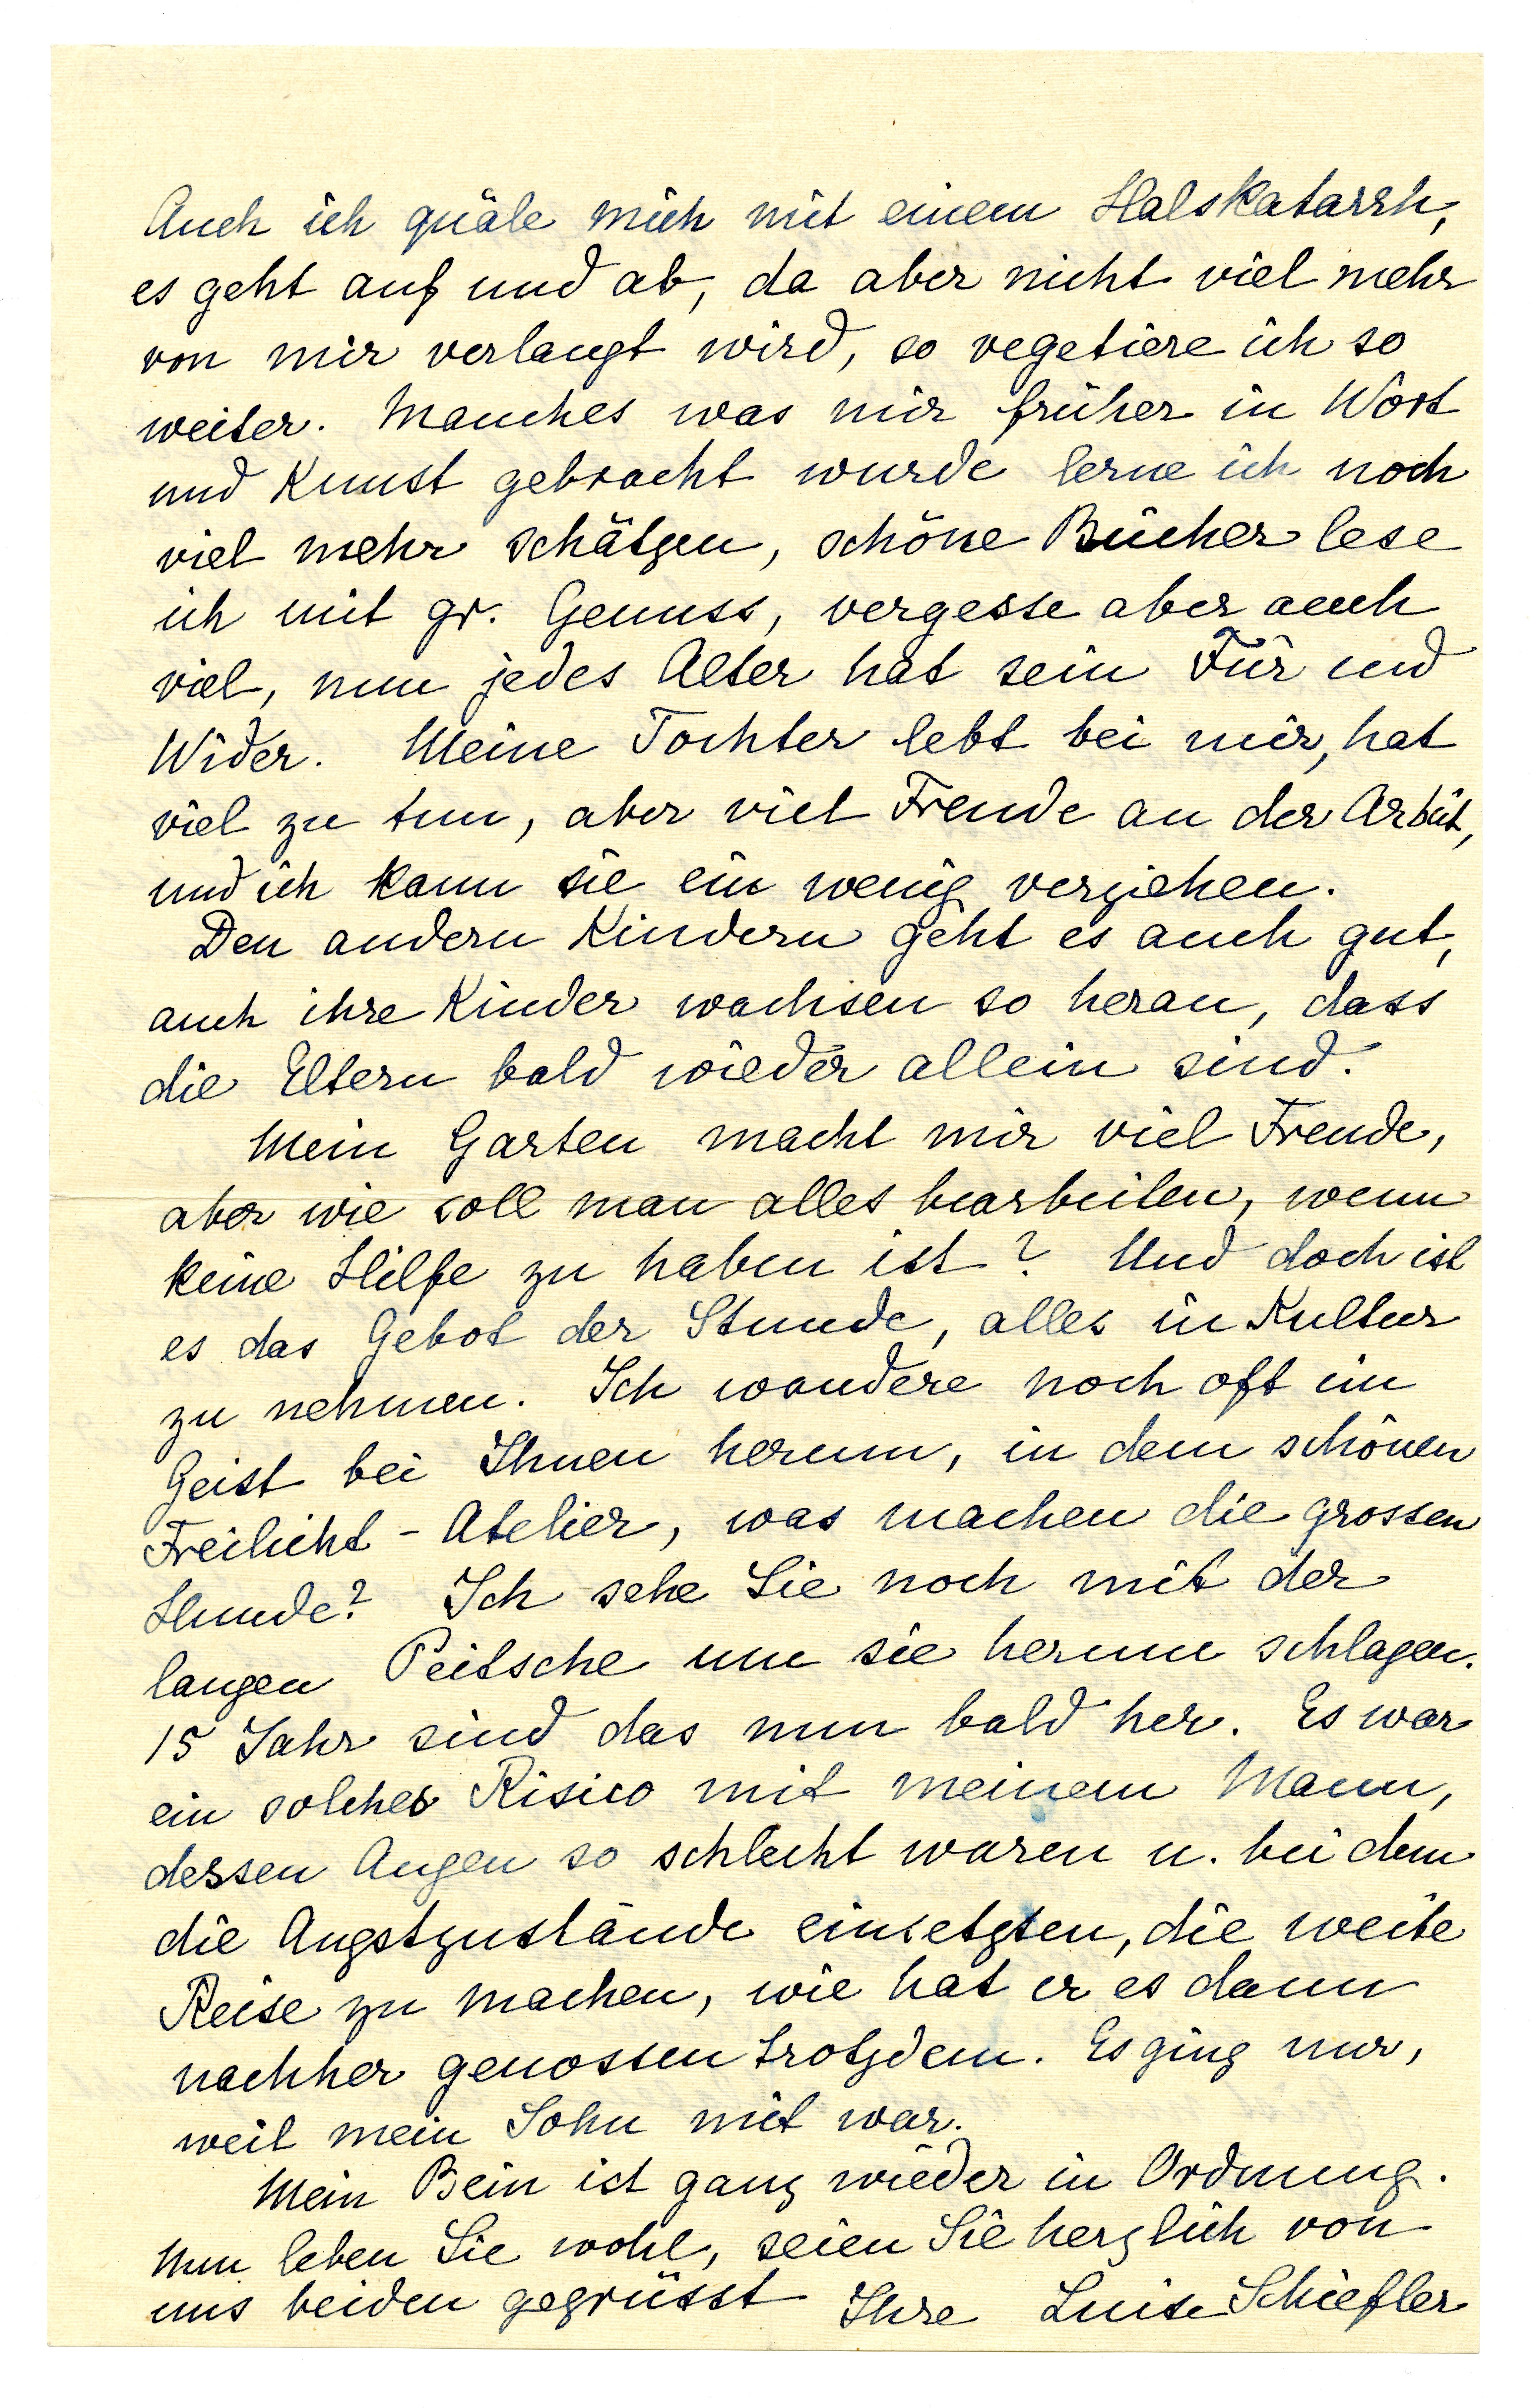 Auch ich quäle mich mit einem Halskatarrh,
es geht auf und ab, da aber nicht viel mehr
von mir verlangt wird, so vegetiere ich so
weiter. Manches was mir früher in Wort
und Kunst gebracht wurde lerne ich noch
viel mehr schätzen, schöne Bücher lese
ich mit gr. Genuss, vergesse aber auch
viel, nun jedes Alter hat sein Für und
Wider. Meine Tochter lebt bei mir, hat
viel zu tun, aber viel Freude an der Arbeit,
und ich kann sie ein wenig verziehen.
Den andern Kindern geht es auch gut,
auch ihre Kinder wachsen so heran, dass
die Eltern bald wieder allein sind.
Mein Garten macht mir viel Freude,
aber wie soll man alles bearbeiten, wenn
keine Hilfe zu haben ist? Und doch ist
es das Gebot der Stunde, alles in Kultur
zu nehmen. Ich wandere noch oft im
Geist bei Ihnen herum, in dem schönen
Freilicht-Atelier, was machen die grossen
Hunde? Ich sehe Sie noch mit der
langen Peitsche um sie herum schlagen.
15 Jahr sind das nun bald her. Es war
ein solches Risico mit meinem Mann,
dessen Augen so schlecht waren u. bei dem
die Angstzustände einsetzten, die weite
Reise zu machen, wie hat er es dann
nachher genossen trotzdem. Es ging nur,
weil mein Sohn mit war.
Mein Bein ist ganz wieder in Ordnung.
Nun leben Sie wohl, seien Sie herzlich von
uns beiden gegrüsst Ihre Luise Schiefler